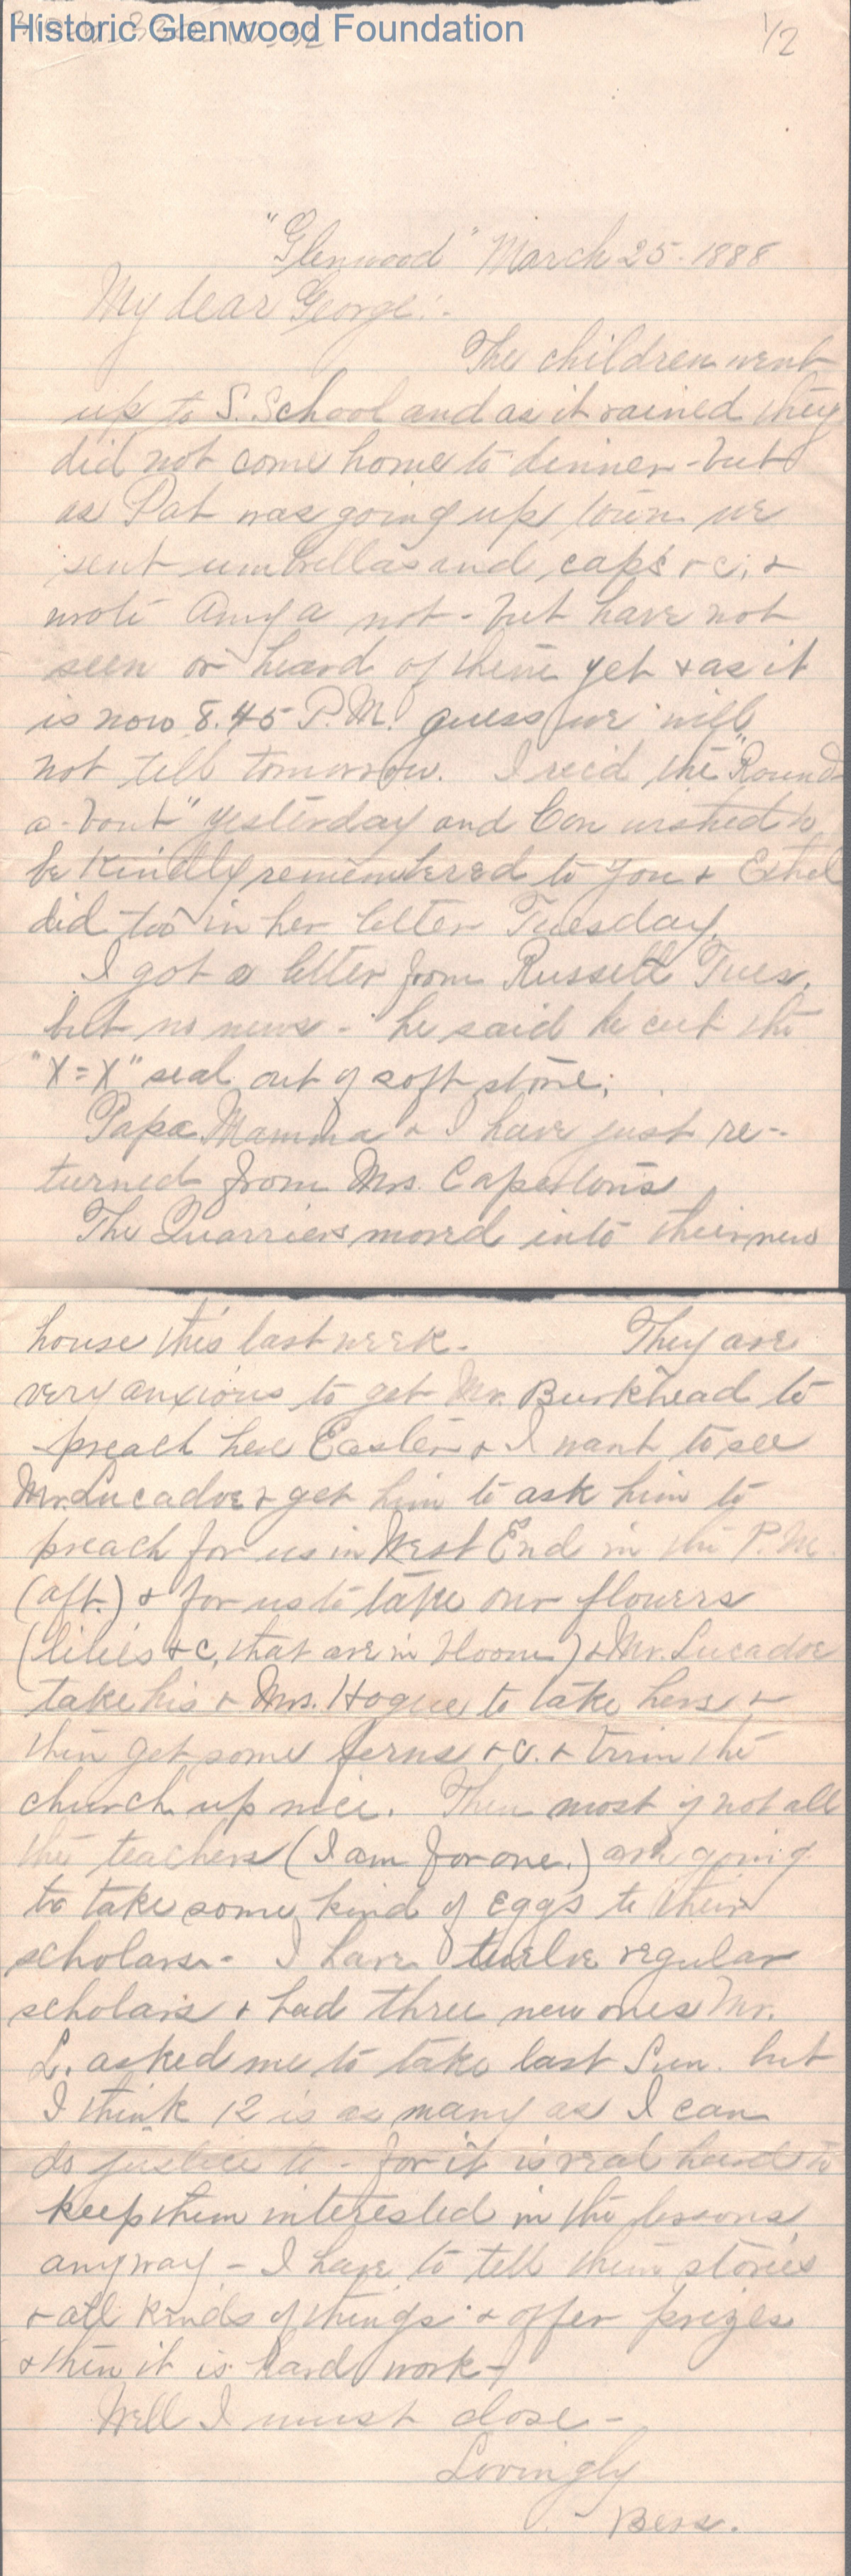 Historic Glenwood Foundation
1/2
"Glenwood" March 25. 1888
My dear George:-
The children went
up to S. School and as it rained they
did not come home to dinner - but
as Pat was going up town we
sent umbrellas and caps &c, &
wrote Amy a not - but have not
seen or heard of them yet & as it
is now 8.45 P.M. guess we will
not till tomorrow. I rec'd the "Round-
a-bout" yesterday and Con wished to
be kindly remembered to you & Ethel
did too in her letter Tuesday.
I got a letter from Russell Tues.
but no news - he said he cut the
"X=X" seal out of soft stone.
Papa Mamma & I have just re-
turned from Mrs. Caperton's
The Quarriers moved into their new
house this last week. They are
very anxious to get Mr. Burkhead to
preach here Easter & I want to see
Mr. Lucadoe & get him to ask him to
preach for us in West End in the P.M.
(aft.) & for us to take our flowers
(lilies &c, that are in bloom) & Mr. Lucadoe
take his & Mrs. Hogue to take hers &
then get some ferns &c. & trim the
church up nice. Then most if not all
the teachers (I am for one.) are going
to take some kind of eggs to their
scholars - I have twelve regular
scholars & had three new ones Mr.
L. asked me to take last Sun. but
I think 12 is as many as I can
do justice to - for it is real hard to
keep them interested in the lessons
anyway - I have to tell them stories
& all kinds of things & offer prizes
& then it is hard work -
Well I must close -
Lovingly
Bess.